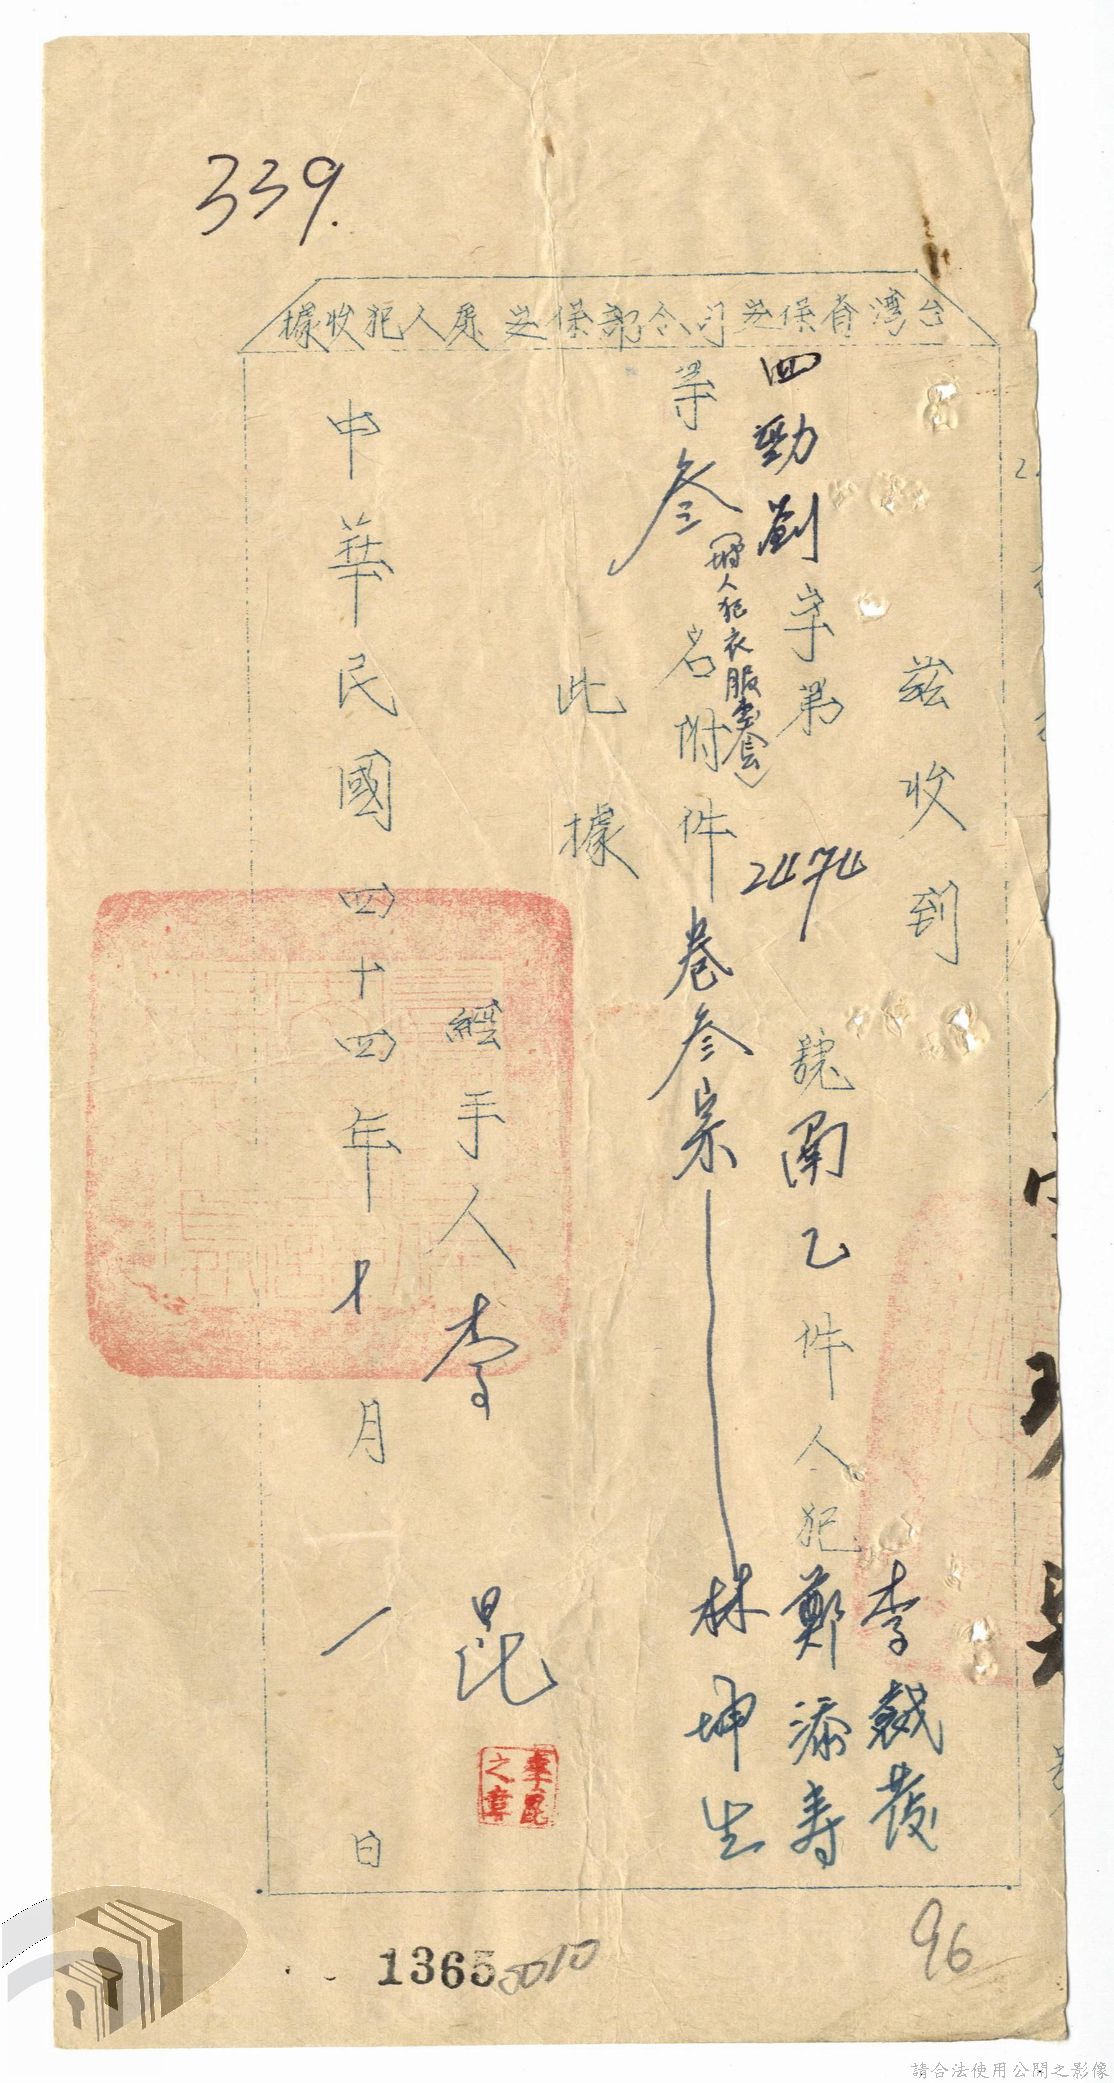 339.
台灣省保安司令部保安處人犯收據
茲收到
四勁劉字第2474號
乙件人犯
李
鄭添壽
林坤生
等叁名附件卷叁宗
人犯衣服壹套
此據
經手人李昆
李昆之章
中華民國四十四年 月一日
1365
0010
96
請合法使用公開之影像